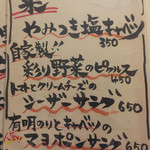 やみつき塩キャベツ
350
自家製!!
彩り野菜のピクルス
450
トマトとクリームチーズの
シーザーサラダ 650
有明のりとキャベツの
マヨポンサラダ 650